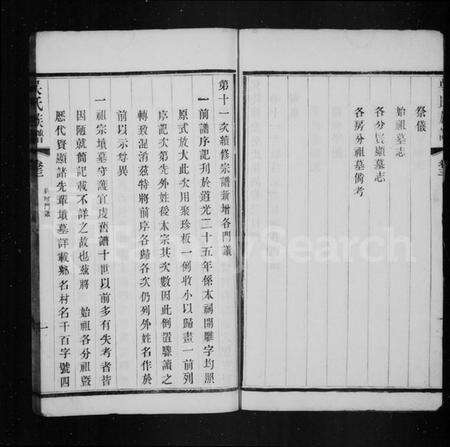 祭儀
始祖墓志
各分貴顯墓志
各房分祖墓偹考
第十一次續修宗譜新增各門議
一前譜序記刋於道光二十五年係太祠開雕字均照
原式放大此次用聚珍板一例收小以歸盡一前列
序記次第先外姓後太宗其次數因此倒置驟讀之
轉致混淆茲特將前序各歸各次仍列外姓名作於
前以示尊異
一祖宗墳墓守護宜虔舊譜十世以前多有失考者皆
因随就簡記載不詳之故也茲將 始祖各分祖暨
歷代貴顯諸先輩墳墓詳載鄉名村名千百字號四
吳氏族譜 卷三
FamilySearch